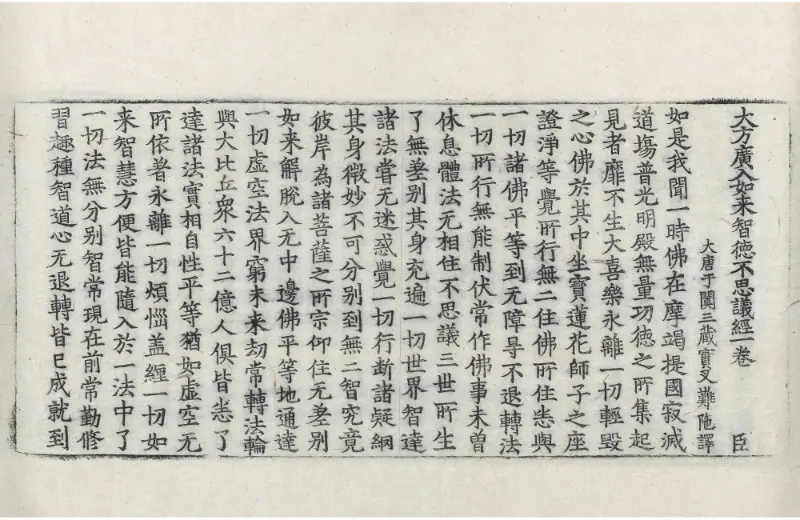 大方廣入如来智德不思議經一卷 臣
大唐于闐三蔵實叉難陁譯
如是我聞一時佛在摩竭提國寂滅
道場普光明殿無量功徳之所集起
見者靡不生大喜樂永離一切輕毀
之心佛於其中坐寶蓮花師子之座
證淨等覺所行無二住佛所住悉與
一切諸佛平等到无障㝵不退轉法
一切所行無能制伏常作佛事未曽
休息體法无相住不思議三世所生
了無差别其身充遍一切世界智達
諸法甞无迷惑覺一切行斷諸疑網
其身微妙不可分别到無二智究竟
彼岸為諸菩薩之所宗仰住无差别
如来解脫入无中邊佛平等地通達
一切虚空法界窮未来劫常轉法輪
與大比丘衆六十二億人俱皆悉了
達諸法實相自性平等猶如虚空无
所依著永離一切煩惱盖纏一切如
来智慧方便皆能隨入於一法中了
一切法無分别智常現在前常勤修
習趣種智道心无退轉皆已成就到